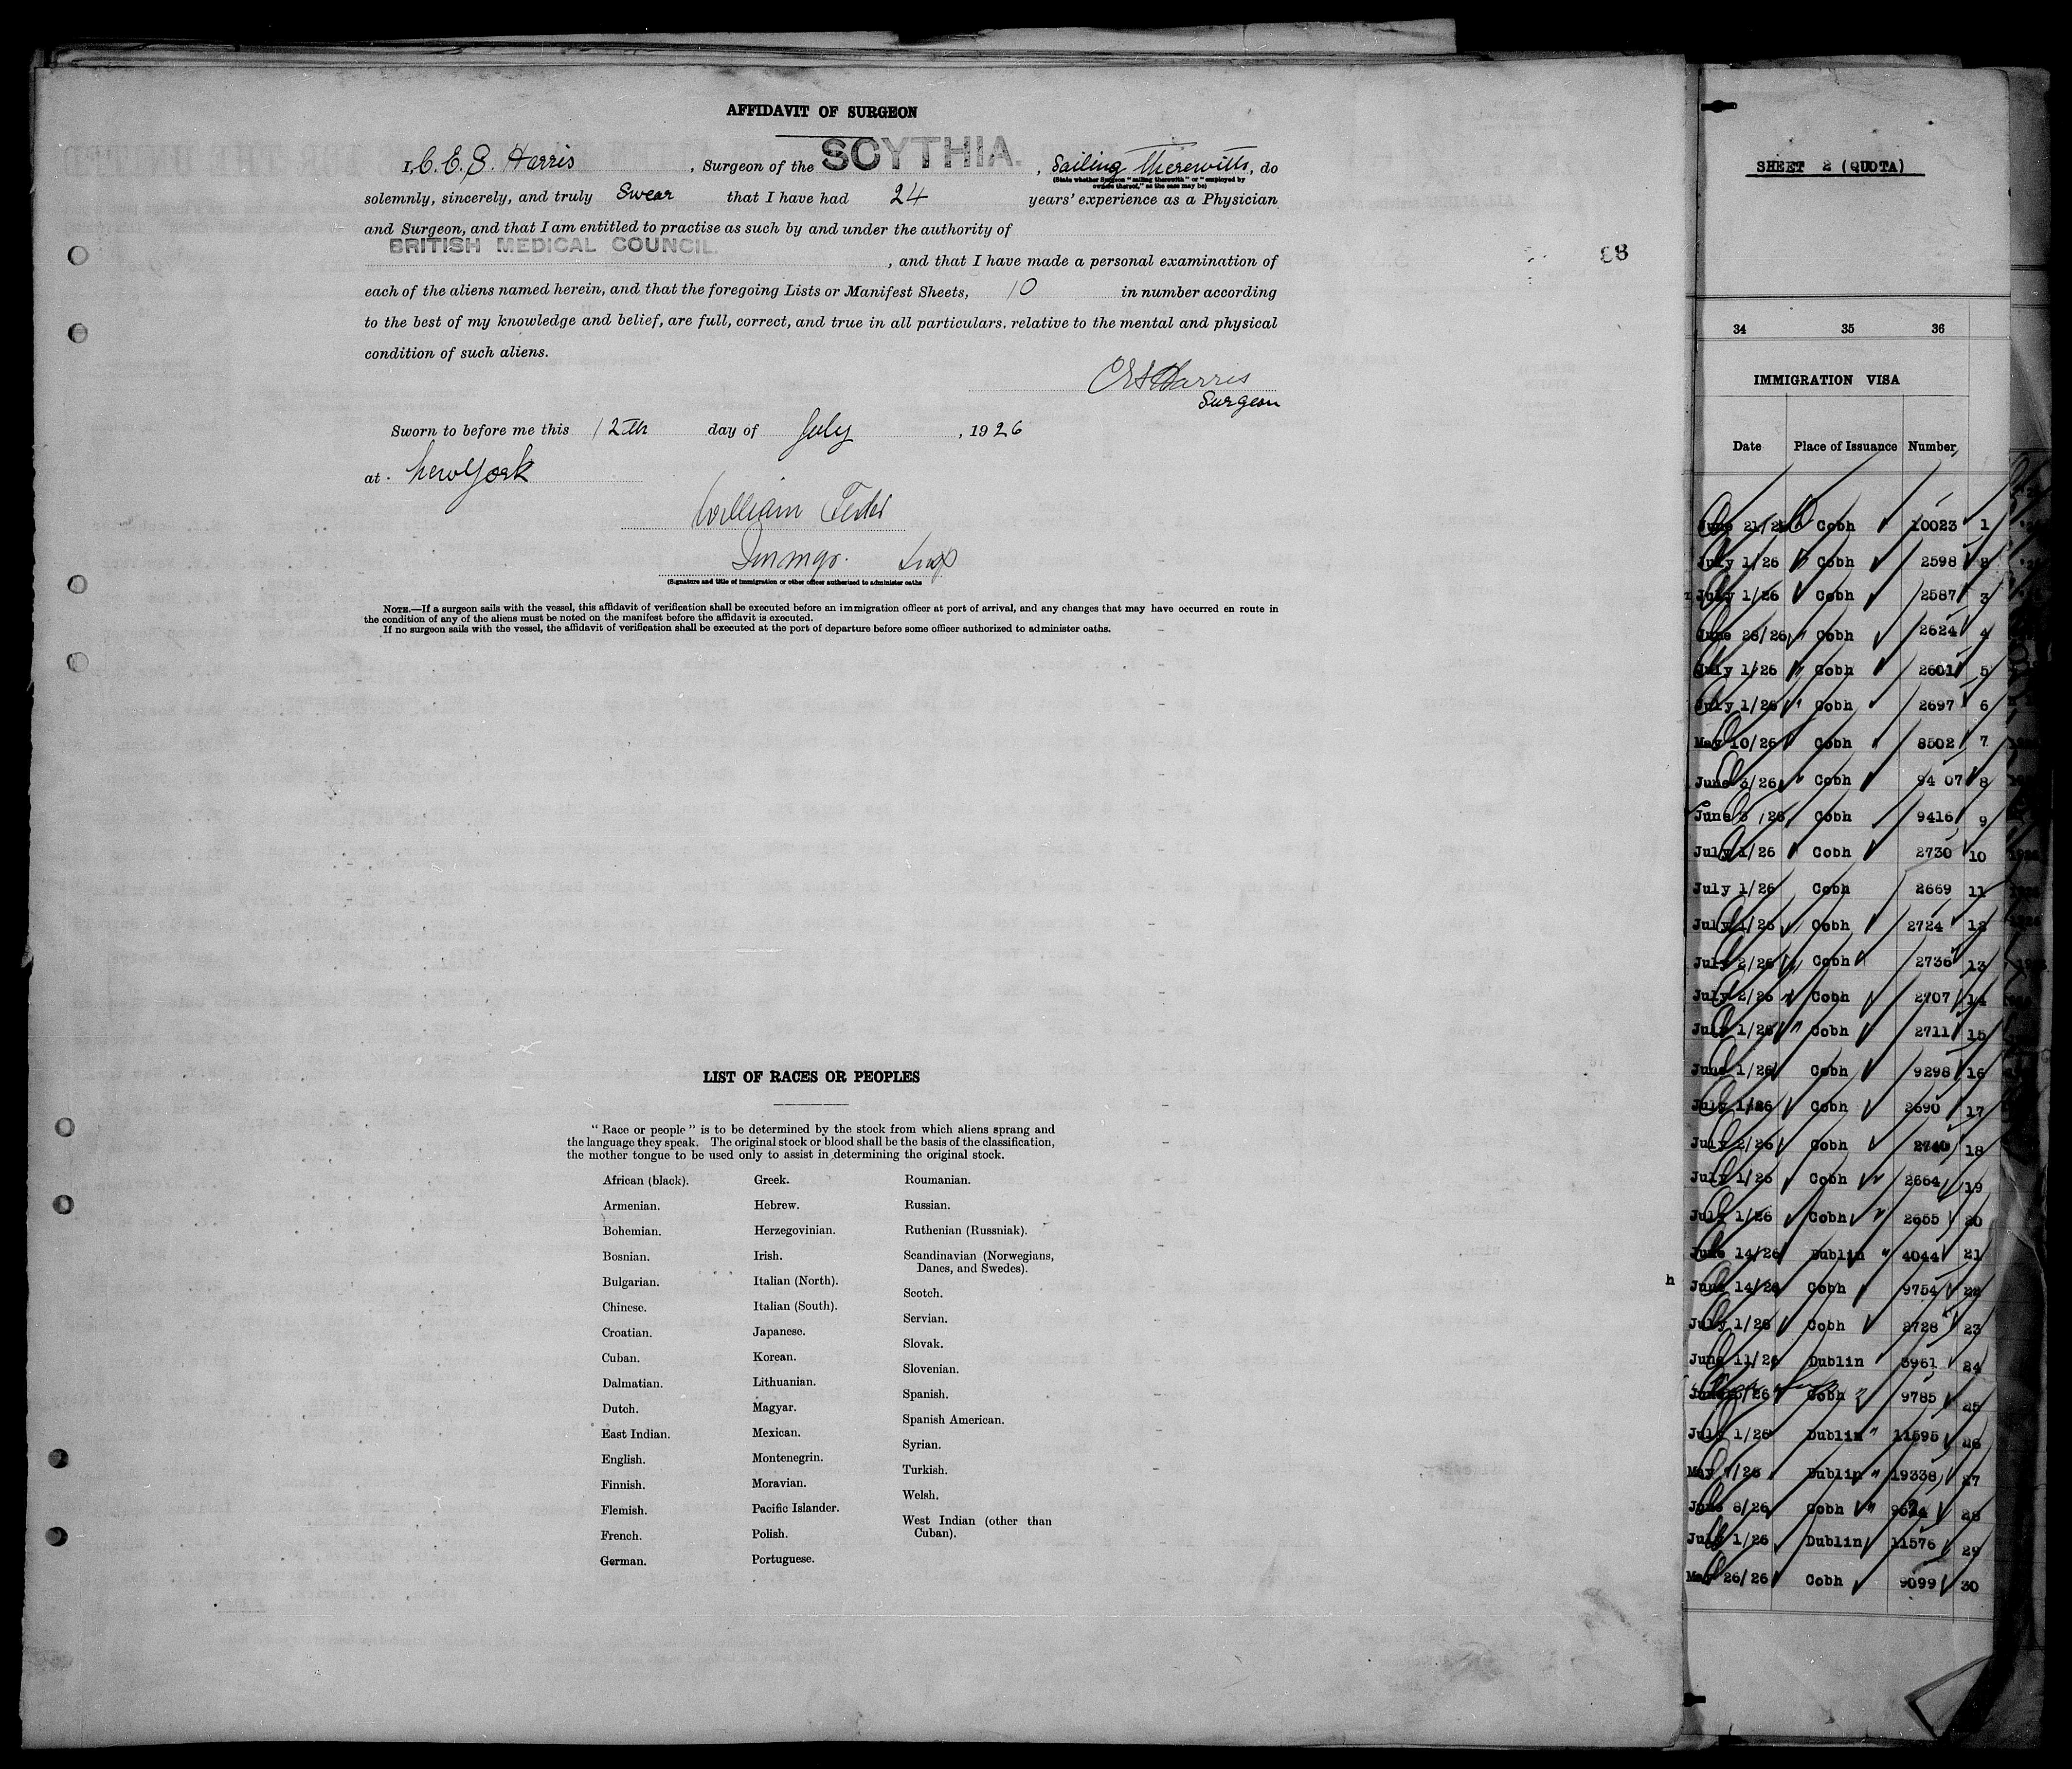 AFFIDAVIT OF SURGEON
I, C. E. S. Harris, Surgeon of the SCYTHIA., Sailing Therewith, do
(State whether Surgeon "sailing therewith" or "employed by
owners thereof," as the case may be)
solemnly, sincerely, and truly Swear that I have had 24 years' experience as a Physician
and Surgeon, and that I am entitled to practise as such by and under the authority of
BRITISH MEDICAL COUNCIL.
, and that I have made a personal examination of
each of the aliens named herein, and that the foregoing Lists or Manifest Sheets, 10 in number according
to the best of my knowledge and belief, are full, correct, and true in all particulars, relative to the mental and physical
condition of such aliens.
CES Harris
Surgeon
Sworn to before me this 12th day of July, 1926
at New York
William
Immgr. Insp
(Signature and title of immigration or other officer authorized to administer oaths
NOTE.—If a surgeon sails with the vessel, this affidavit of verification shall be executed before an immigration officer at port of arrival, and any changes that may have occurred en route in
the condition of any of the aliens must be noted on the manifest before the affidavit is executed.
If no surgeon sails with the vessel, the affidavit of verification shall be executed at the port of departure before some officer authorized to administer oaths.
88
LIST OF RACES OR PEOPLES
"Race or people" is to be determined by the stock from which aliens sprang and
the language they speak. The original stock or blood shall be the basis of the classification,
the mother tongue to be used only to assist in determining the original stock.
African (black).
Armenian.
Bohemian.
Bosnian.
Bulgarian.
Chinese.
Croatian.
Cuban.
Dalmatian.
Dutch.
East Indian.
English.
Finnish.
Flemish.
French.
German.
Greek.
Hebrew.
Herzegovinian.
Irish.
Italian (North).
Italian (South).
Japanese.
Korean.
Lithuanian.
Magyar.
Mexican.
Montenegrin.
Moravian.
Pacific Islander.
Polish.
Portuguese.
Roumanian.
Russian.
Ruthenian (Russniak).
Scandinavian (Norwegians,
Danes, and Swedes).
Scotch.
Servian.
Slovak.
Slovenian.
Spanish.
Spanish American.
Syrian.
Turkish.
Welsh.
West Indian (other than
Cuban).
SHEET 2 (QUOTA)
34 35 36
IMMIGRATION VISA
Date Place of Issuance Number
June 21/26 Cobh 10023 1
July 1/26 Cobh 2598 2
July 1/26 Cobh 2587 3
June 28/26 Cobh 2624 4
July 1/26 Cobh 2601 5
July 1/26 Cobh 2697 6
May 10/26 Cobh 8502 7
June 3/26 Cobh 94 07 8
June 3/26 Cobh 9416 9
July 1/26 Cobh 2730 10
July 1/26 Cobh 2669 11
July 1/26 Cobh 2724 12
July 2/26 Cobh 2736 13
July 2/26 Cobh 2707 14
July 1/26 Cobh 2711 15
June 1/26 Cobh 9298 16
July 1/26 Cobh 2690 17
July 2/26 Cobh 2740 18
July 1/26 Cobh 2664 19
July 1/26 Cobh 2655 20
June 14/26 Dublin 4044 21
June 14/26 Cobh 9754 22
July 1/26 Cobh 2728 23
June 11/26 Dublin 3961 24
June /26 Cobh 9785 25
July 1/26 Dublin 11595 26
May /26 Dublin 19338 27
June 8/26 Cobh 28
July 1/26 Dublin 11576 29
May 26/26 Cobh 9099 30